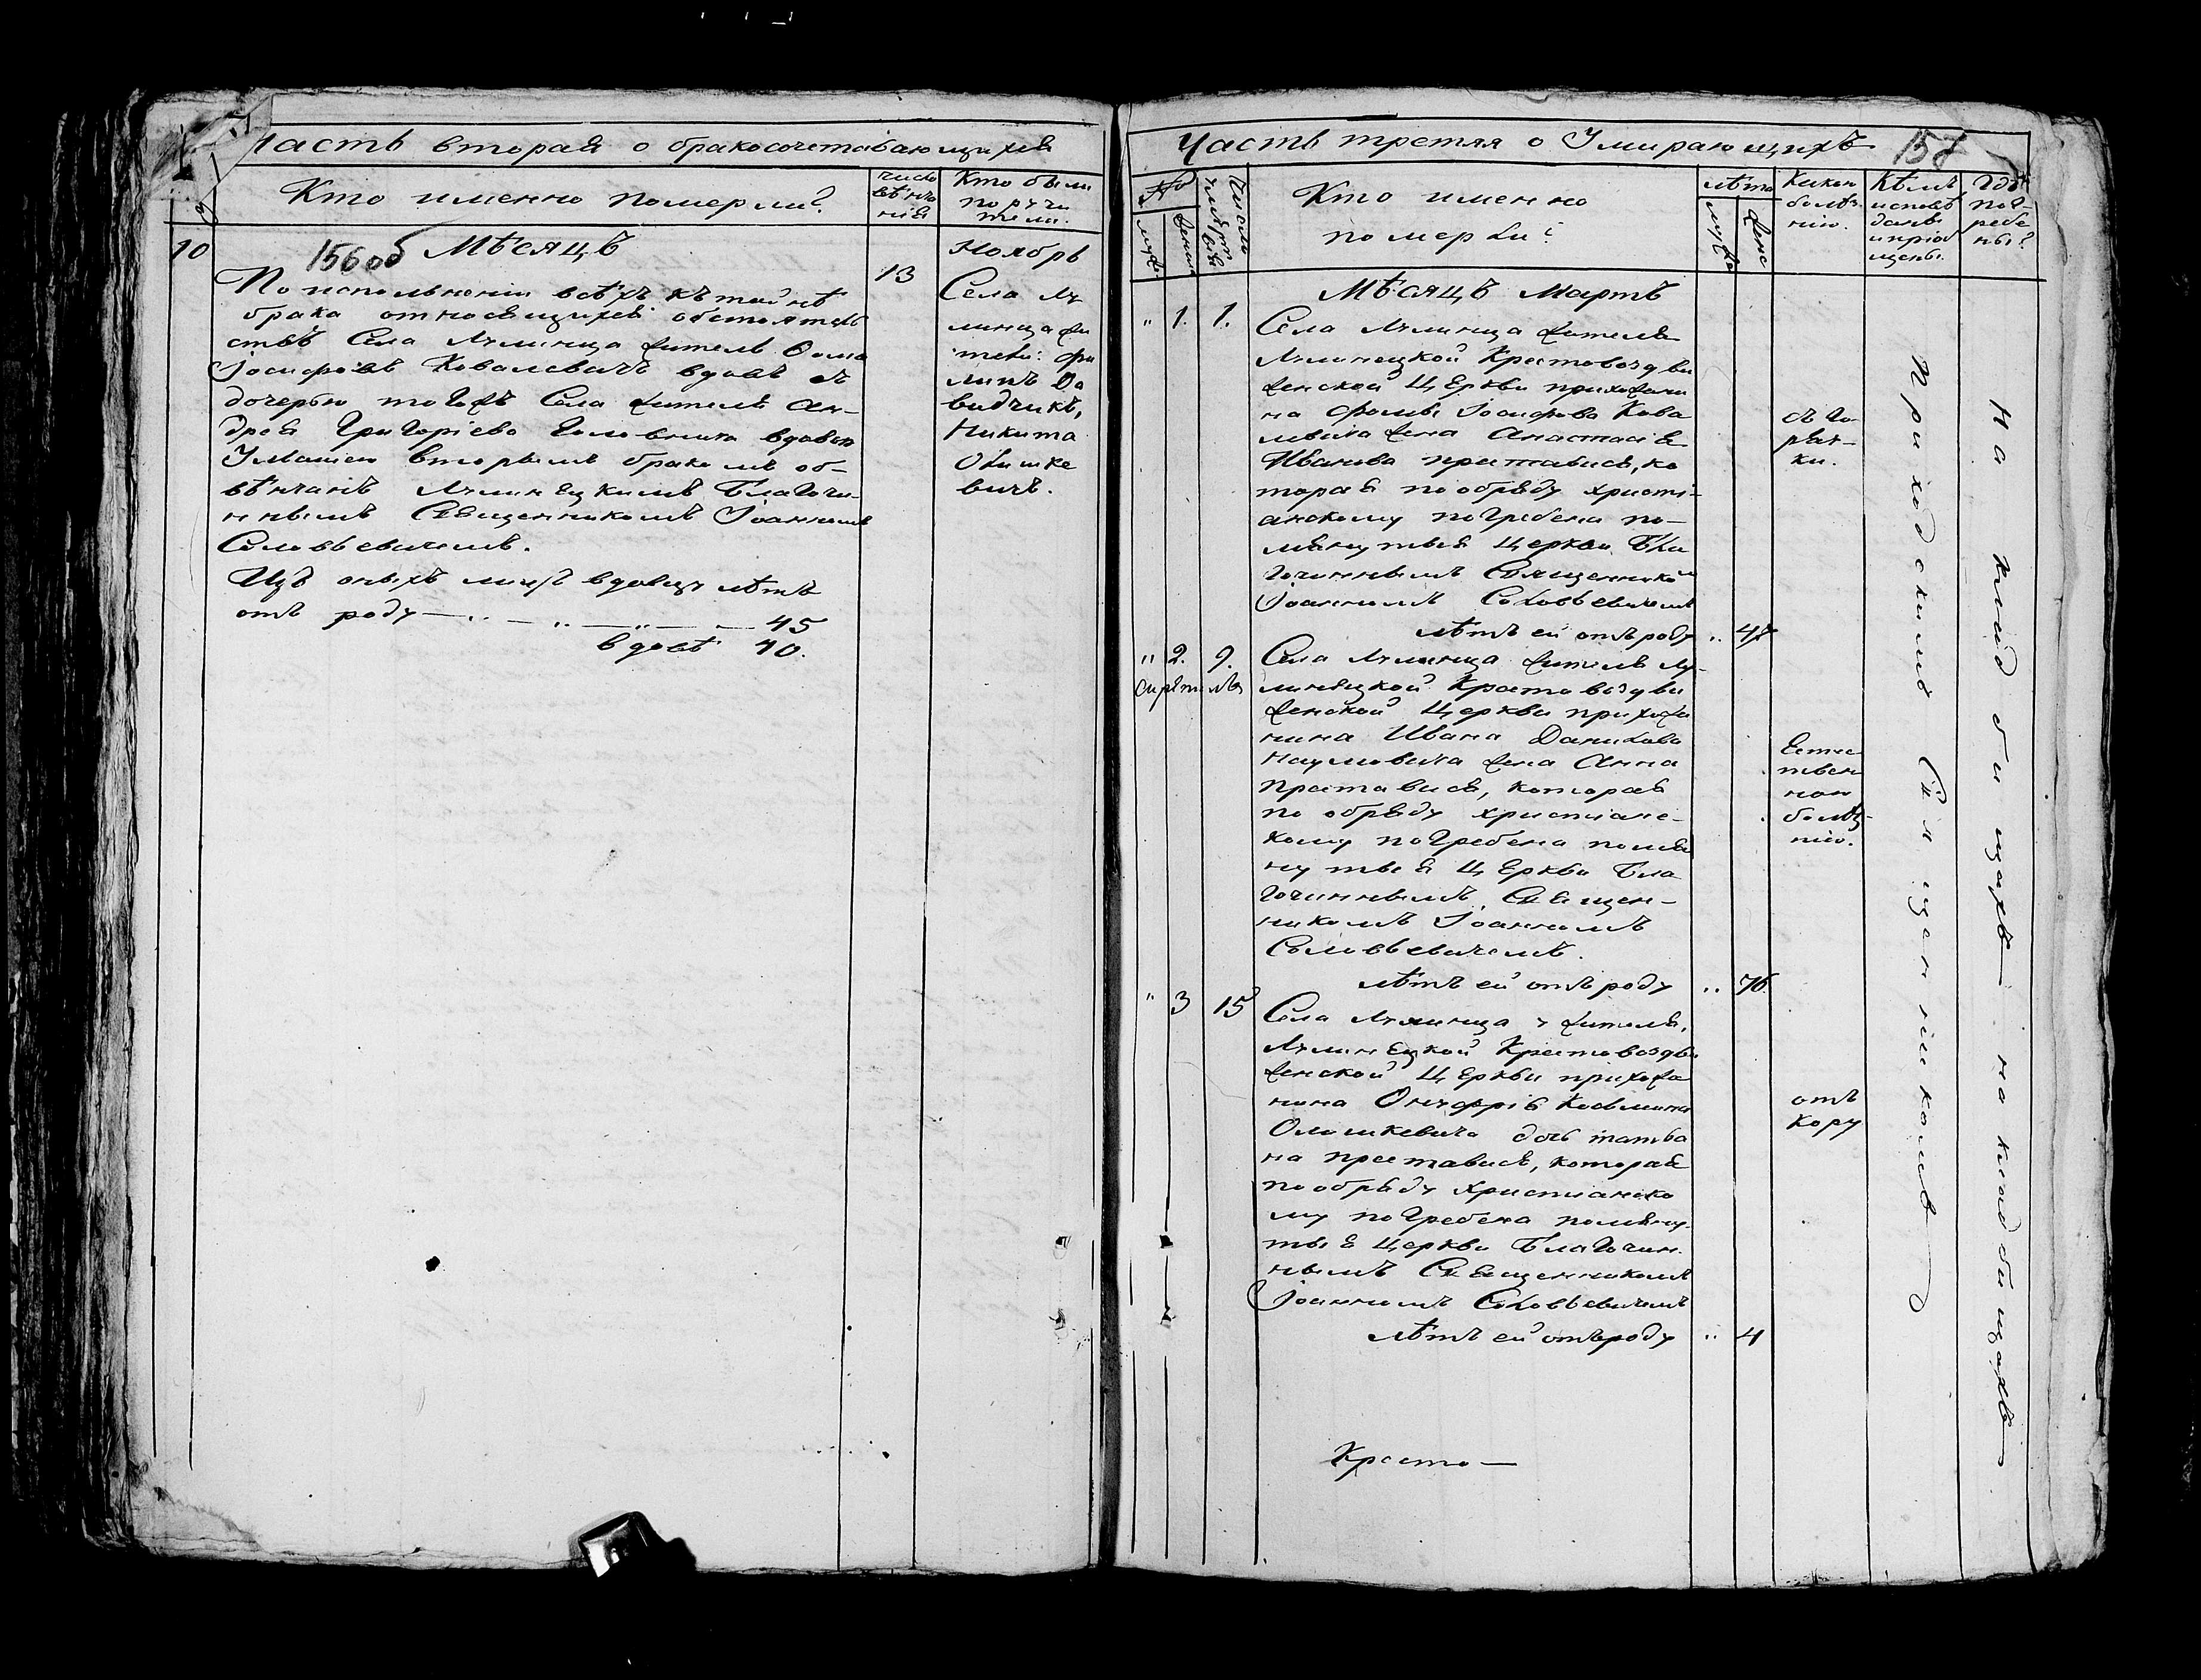 Часть вторая о бракосочетавающихся
Кто именно померли?
число вѣнчанія
Кто были поручители.
10
156 об
Мѣсяцъ
Ноябрь
13
По исполненіи всѣхъ къ тайнѣ
брака относящихся обстоятель
ствъ Села Лулинца житель Фома
Іосифовъ Ковалевичъ вдовъ съ
дочерью тогожъ Села жителя Ан-
дрея Григоріева Головчика вдовою
вторымъ бракомъ об-
вѣнчанъ Лулинецкимъ Благочи-
ннымъ Священникомъ Іоанномъ
Соловьевичемъ.
Изъ оныхъ лицъ вдовцу лѣтъ
отъ роду — .. — .. — .. — 45
вдовѣ 40.
Села Лу
линца жи
тели: Фи
липъ Да
видчикъ,
Никита
Олишке
вичъ.
Часть третяя о Умирающихъ
№
муж
женск
Число смерти
Кто именно
померли?
лѣта
муж
женс
Какою
болѣз
нію.
Кѣмъ
исповѣ
даны
и пріоб
щены.
Гдѣ
пог-
ребе
ны?
Мѣсяцъ Мартъ
" 1. 1.
Села Лулинца жителя
Лулинецкой Крестовоздви
женской Церкви прихожани
на Фомы Іосифова Кова
левича жена Анастасія
Иванова преставися, ко
торая по обряду христі-
анскому погребена по-
мянутыя Церкви Бла
гочиннымъ Священнико
Іоанномъ Соловьевичемъ
лѣтъ ей отъ роду .. 47
съ го
ряч-
ки.
" 2. 9.
Села Лулинца жителя Лу-
линецкой Крестовоздви
женской Церкви прихожа
нина Ивана Данилова
Наумовича жена Анна
преставися, которая
по обряду христіанс-
кому погребена помя
нутыя Церкви Бла
гочиннымъ Священ-
никомъ Іоанномъ
Соловьевичемъ.
лѣтъ ей отъ роду .. 76.
Естес
твен
ною
болѣз-
нію.
" 3 15
Села Лулинца жителя,
Лулинецкой Крестовоздви
женской Церкви прихожа
нина Онуфрія Косьмина
Олишкевича дочь Татья
на преставися, которая
по обряду христианско
му погребена помяну-
тыя Церкви Благочин
нымъ Священникомъ
Іоанномъ Соловьевичемъ
лѣтъ ей отъ роду .. 4
отъ
Кору
Приходскимъ Священникомъ
На кладбищахъ — на кладбищахъ
Кресто —